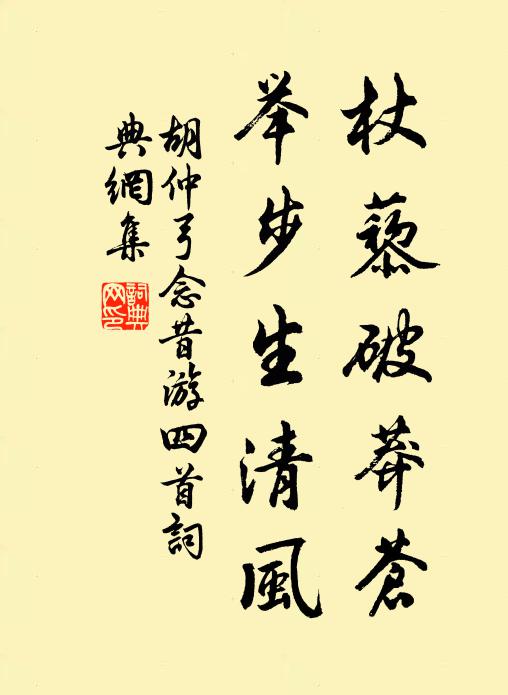 杖藜破莽蒼
举步生清風
胡仲弓念昔游四首詞
典網集
詞典网印